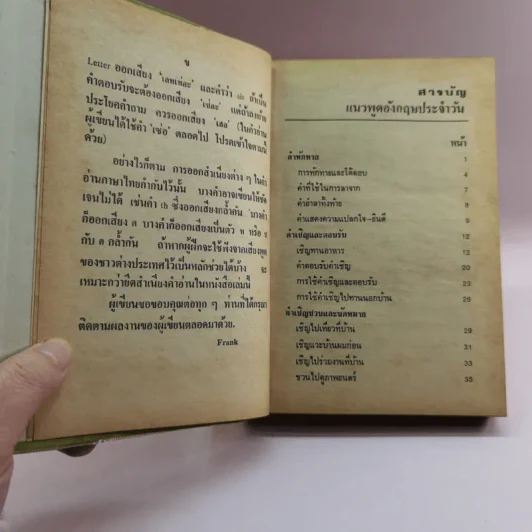 ข
Letter ออกเสียง 'เลทเท่อะ' และคำว่า sir ถ้าเป็น
คำตอบรับจะต้องออกเสียง 'เซ่อะ' แต่ถ้าลงท้าย
ประโยคคำถาม ควรออกเสียง (ในคำอ่าน
ผู้เขียนได้ใช้คำ 'เซ่อ' ตลอดไป โปรดเข้าใจตามนี้
ด้วย)
อย่างไรก็ตาม การออกสำเนียงต่าง ๆ ในคำ
อ่านภาษาไทยกำกับไว้นั้น บางคำอาจเขียนให้ชัด
เจนไม่ได้ เช่นคำ th ซึ่งออกเสียงกล้ำกัน บางคำ
ก็ออกเสียง ด บางคำก็ออกเสียงเป็นตัว ท หรือ ซ
กับ ด กล้ำกัน ถ้าหากผู้ฝึกจะใช้ฟังจากเสียงพูด
ของชาวต่างประเทศไว้เป็นหลักช่วยได้บ้าง จะ
เหมาะกว่ายึดสำเนียงคำอ่านในหนังสือเล่มนี้
ผู้เขียนขอขอบคุณต่อทุก ๆ ท่านที่ได้กรุณา
ติดตามผลงานของผู้เขียนตลอดมาด้วย.
Frank
สารบัญ
แนวพูดอังกฤษประจำวัน
หน้า
คำทักทาย 1
การทักทายและโต้ตอบ 4
คำที่ใช้ในการลาจาก 7
คำอำลาทั้งท้าย 9
คำแสดงความแปลกใจ-ยินดี 9
คำเชิญและตอบรับ 12
เชิญทานอาหาร 12
คำตอบรับคำเชิญ 20
การใช้คำเชิญและตอบรับ 23
การใช้คำเชิญไปทานนอกบ้าน 26
คำเชิญชวนและนัดหมาย
เชิญไปเที่ยวที่บ้าน 29
เชิญแวะบ้านผมก่อน 31
เชิญไปร่วมงานที่บ้าน 33
ชวนไปดูภาพยนตร์ 35